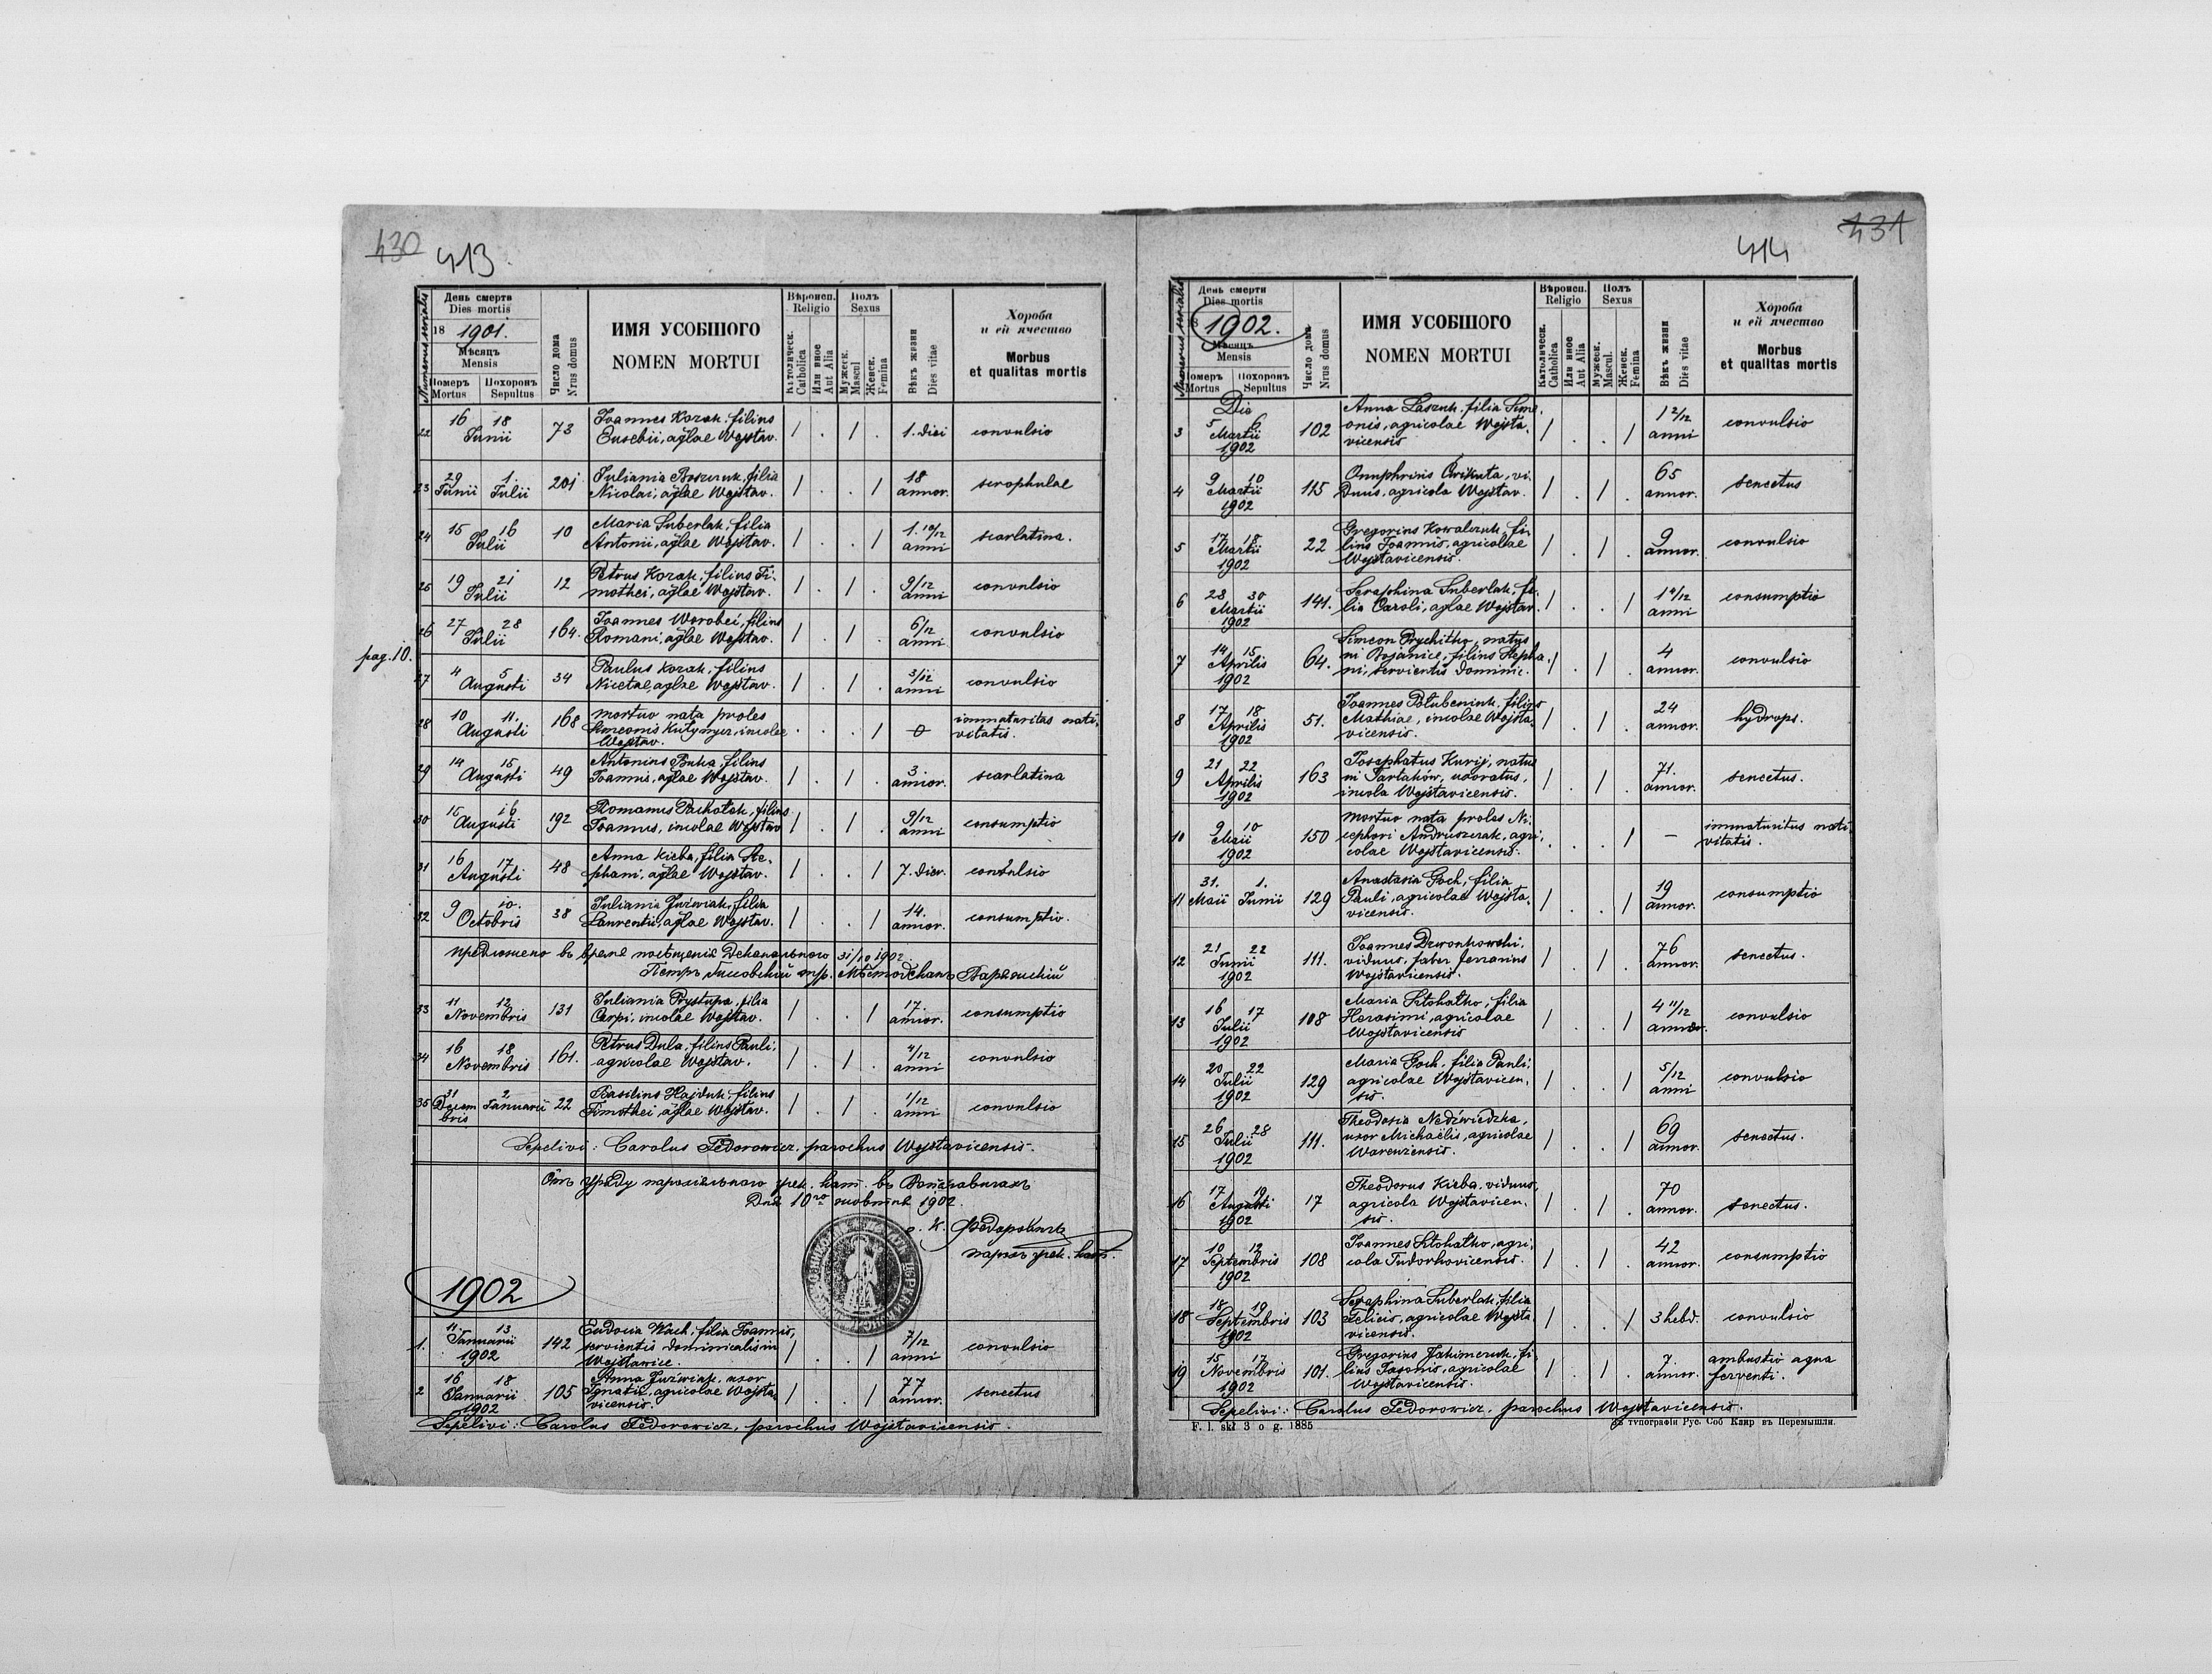 430
413
День смерти
Dies mortis
18 1901.
Мѣсяцъ
Mensis
Номеръ
Mortus
Похоронъ
Sepultus
Numerus serialis
Число дома
Nrus domus
ИМЯ УСОБШОГО
NOMEN MORTUI
Вѣроисп.
Religio
Католическ.
Catholica
Или иное
Aut Alia
Полъ
Sexus
Мужеск.
Mascul
Женск.
Femina
Вѣкъ жизни
Dies vitae
Хороба
и ей ячество
Morbus
et qualitas mortis
22 16 18 Junii 73 Joannes Kozak, filius
Eusebii, aglae Wojstav. 1. diei convulsio
23 29 Junii 1. Julii 201 Juliania filia
Nicolai, aglae Wojstav. 18 annor. scrophulae
24 15 16 Julii 10 Maria Suberlak, filia
Antonii, aglae Wojstav. 1. 10/12 anni scarlatina.
25 19 21 Julii 12 Petrus Kozak, filius Ti-
mothei, aglae Wojstav. 9/12 anni convulsio
26 27 28 Julii 164. Joannes Worobei, filius
Romani, aglae Wojstav. 6/12 anni convulsio
pag. 10.
27 4 5 Augusti 34 Paulus Kozak, filius
Nicetae, aglae Wojstav. 3/12 anni convulsio
28 10 11. Augusti 168 mortuo nata proles
Simeonis incolae
Wojstav. 0 immaturitas nati-
vitatis.
29 14 15 Augusti 49 Antonius Buha, filius
Joannis, aglae Wojstav. 3. annor. scarlatina
30 15 16 Augusti 192 Romanus Pachołok, filius
Joannis, incolae Wojstav 9/12 anni consumptio
31 16 17 Augusti 48 Anna Kicba, filia Ste-
phani, aglae Wojstav. 7. dier. convulsio
32 9 10. Octobris 38 Juliania Juźwiak, filia
Laurentii, aglae Wojstav. 14. annor. consumptio.
предложено въ время посѣщенія Деканального 31/10 1902.
Петръ Варяжскій
33 11 12 Novembris 131 Juliania Prystupa, filia
Carpi, incolae Wojstav. 17. annor. consumptio
34 16 18 Novembris 161. Petrus Dula, filius Pauli,
agricolae Wojstav. 4/12 anni convulsio
35 31 Decem
bris 2 Januarii 22 Basilius Hajduk, filius
Timothei aglae Wojstav. 1/12 anni convulsio
Sepelivi: Carolus Fedorowicz, parochus Wojstavicensis.
Отъ уряду парохіяльного грек. кат. въ Войславичахъ
Дня 10го 1902.
К. Федоровичъ
парох грек. кат.
1902
1. 11. 13 Januarii
1902 142 Eudocia Wach, filia Joannis,
servientis dominicalis in
Wojsławice. 7/12 anni convulsio
2 16 18 Januarii
1902 105 Anna Juźwiak, uxor
Ignatii, agricolae Wojsta-
vicensis. 77 annor. senectus
Sepelivi: Carolus Fedorowicz, parochus Wojstavicensis.
431
414
День смерти
Dies mortis
18 1902.
Мѣсяцъ
Mensis
Номеръ
Mortus
Похоронъ
Sepultus
Numerus serialis
Число дома
Nrus domus
ИМЯ УСОБШОГО
NOMEN MORTUI
Вѣроисп.
Religio
Католическ.
Catholica
Или иное
Aut Alia
Полъ
Sexus
Мужеск.
Mascul.
Женск.
Femina
Вѣкъ жизни
Dies vitae
Хороба
и ей ячество
Morbus
et qualitas mortis
Die
3 5 6 Martii
1902 102 Anna Łaszuk, filia Sime-
onis, agricolae Wojsta-
vicensis 1 2/12 anni convulsio
4 9 10 Martii
1902 115 Onuphrius vi-
duus, agricola Wojstav. 65 annor. senectus
5 17 18 Martii
1902 22 Gregorius Kowalczuk, fi-
lius Joannis, agricolae
Wojstavicensis. 9 annor. convulsio
6 28 30 Martii
1902 141. Seraphina Suberlak, fi-
lia Caroli, aglae Wojstav. anni consumptio
7 14 15 Aprilis
1902 64. Simeon Prychitko, natus
in Bojanice, filius Stepha-
ni, servientis dominic. 4 annor. convulsio
8 17 18 Aprilis
1902 51. Joannes Połubeniuk, filius
Mathiae, incolae Wojsta-
vicensis. 24 annor. hydrops.
9 21 22 Aprilis
1902 163 Josaphatus Kurij, natus
in Tartaków, uxoratus,
incola Wojstavicensis. 71. annor. senectus.
10 9 10 Maii
1902 150 mortuo nata proles Ni-
cephori Andruszczak, agri-
colae Wojstavicensis. — immaturitas nati-
vitatis.
11 31. Maii 1. Junii 129 Anastasia Goch, filia
Pauli, agricolae Wojsta-
vicensis. 19 annor. consumptio
12 21 22 Junii
1902 111. Joannes Dzwonkowski,
viduus, faber ferrarius
Wojstavicensis. 76 annor. senectus.
13 16 17 Julii
1902 108 Maria Sztokałko, filia
Herasimi, agricolae
Wojstavicensis 4 11/12 annor. convulsio
14 20 22 Julii
1902 129 Maria Goch, filia Pauli,
agricolae Wojstavicen-
sis. 5/12 anni convulsio
15 26 28 Julii
1902 111. Theodosia Nedźwiedzka,
uxor Michaëlis, agricolae
Warenzensis. 69 annor. senectus.
16 17 19 Augusti
1902 17 Theodorus Kicba, viduus,
agricola Wojstavicen-
sis. 70 annor. senectus.
17 10 12 Septembris
1902 108 Joannes Sztokałko, agri-
cola Tudorkovicensis. 42 annor. consumptio
18 18 19 Septembris
1902 103 Seraphina Suberlak, filia
Felicis, agricolae Wojsta-
vicensis. 3 hebd. convulsio
19 15 17 Novembris
1902 101. Gregorius Jakimczuk, fi-
lius Jasonis, agricolae
Wojstavicensis. 7. annor. ambustio aqua
ferventi.
Sepelivi: Carolus Fedorowicz, parochus Wojstavicensis.
F. I. skł 3 o g. 1885
Въ типографіи Рус. Соб Капр въ Перемышли.